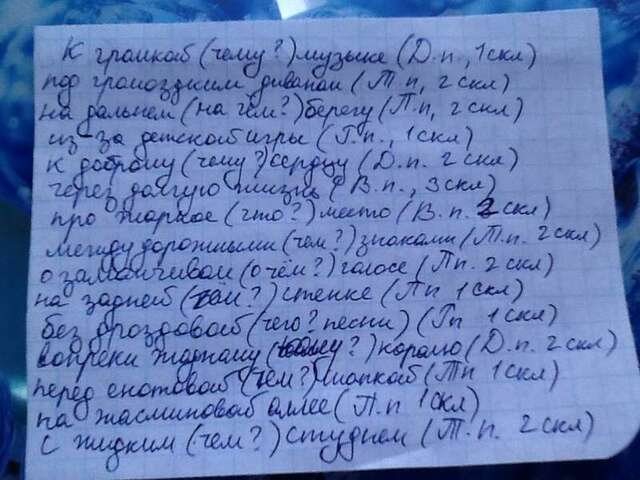 К громкой (чему?) музыке (Д.п., 1скл)
под громоздким диваном (Т.п, 2скл)
на дальнем (на чём?) берегу (П.п, 2скл)
из-за детской игры (Г.п., 1скл)
к доброму (чему?) сердцу (Д.п. 2скл)
через долгую жизнь (В.п., 3скл)
про жаркое (что?) место (В.п. 2скл)
между дорожными (чем?) знаками (Т.п. 2скл)
о заманчивом (о чём?) голосе (П.п. 2скл)
на задней (чём?) стенке (Пп 1скл)
без дроздовой (чего? песни) (Гп 1скл)
вопреки жадному (чему?) королю (Д.п. 2скл)
перед енотовой (чем?) шапкой (Тп 1скл)
на жасминовой аллее (П.п 1скл)
с жидким (чем?) студнем (Т.п. 2скл)